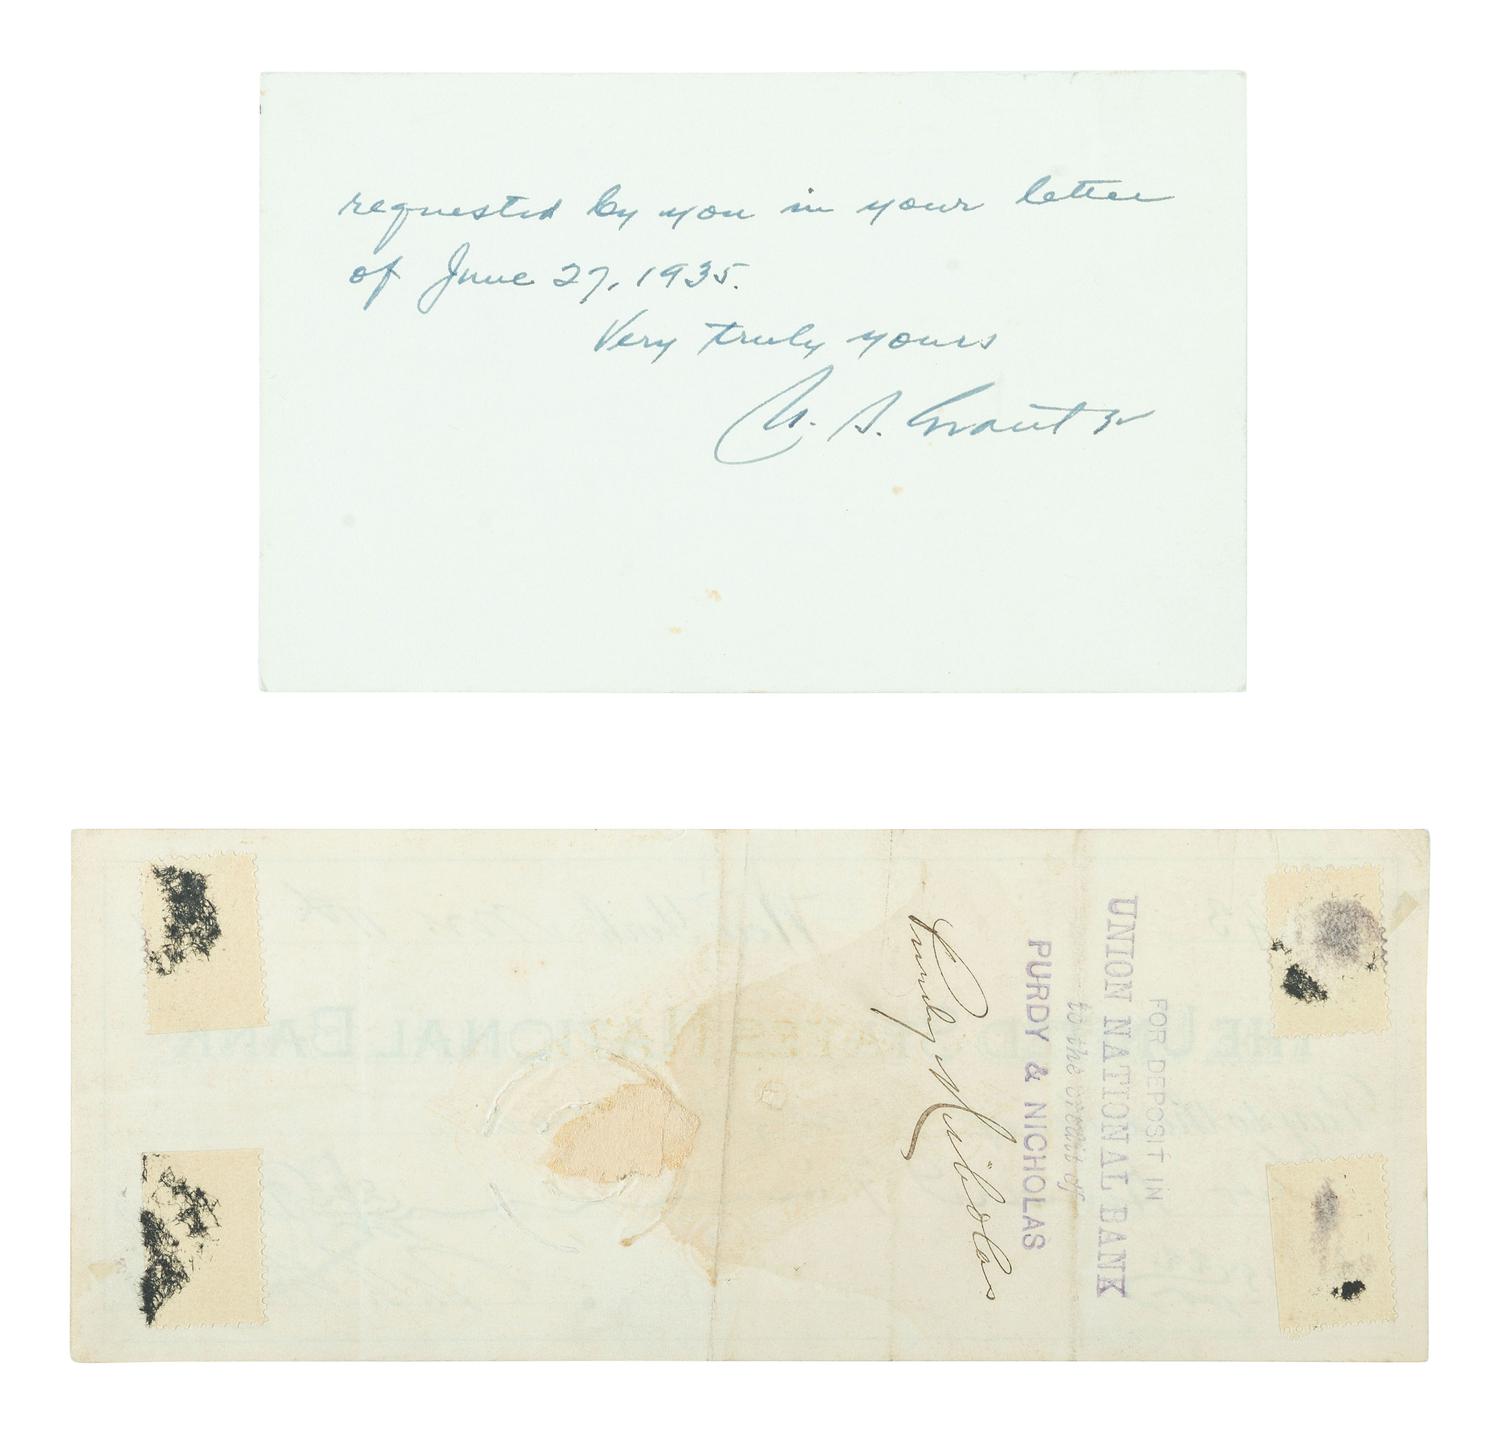 requested by you in your letter
of June 27, 1935.
Very truly yours
U. S. Grant 3r
FOR DEPOSIT IN
UNION NATIONAL BANK
to the credit of
PURDY & NICHOLAS
Purdy & Nicholas
THE UNITED STATES NATIONAL BANK